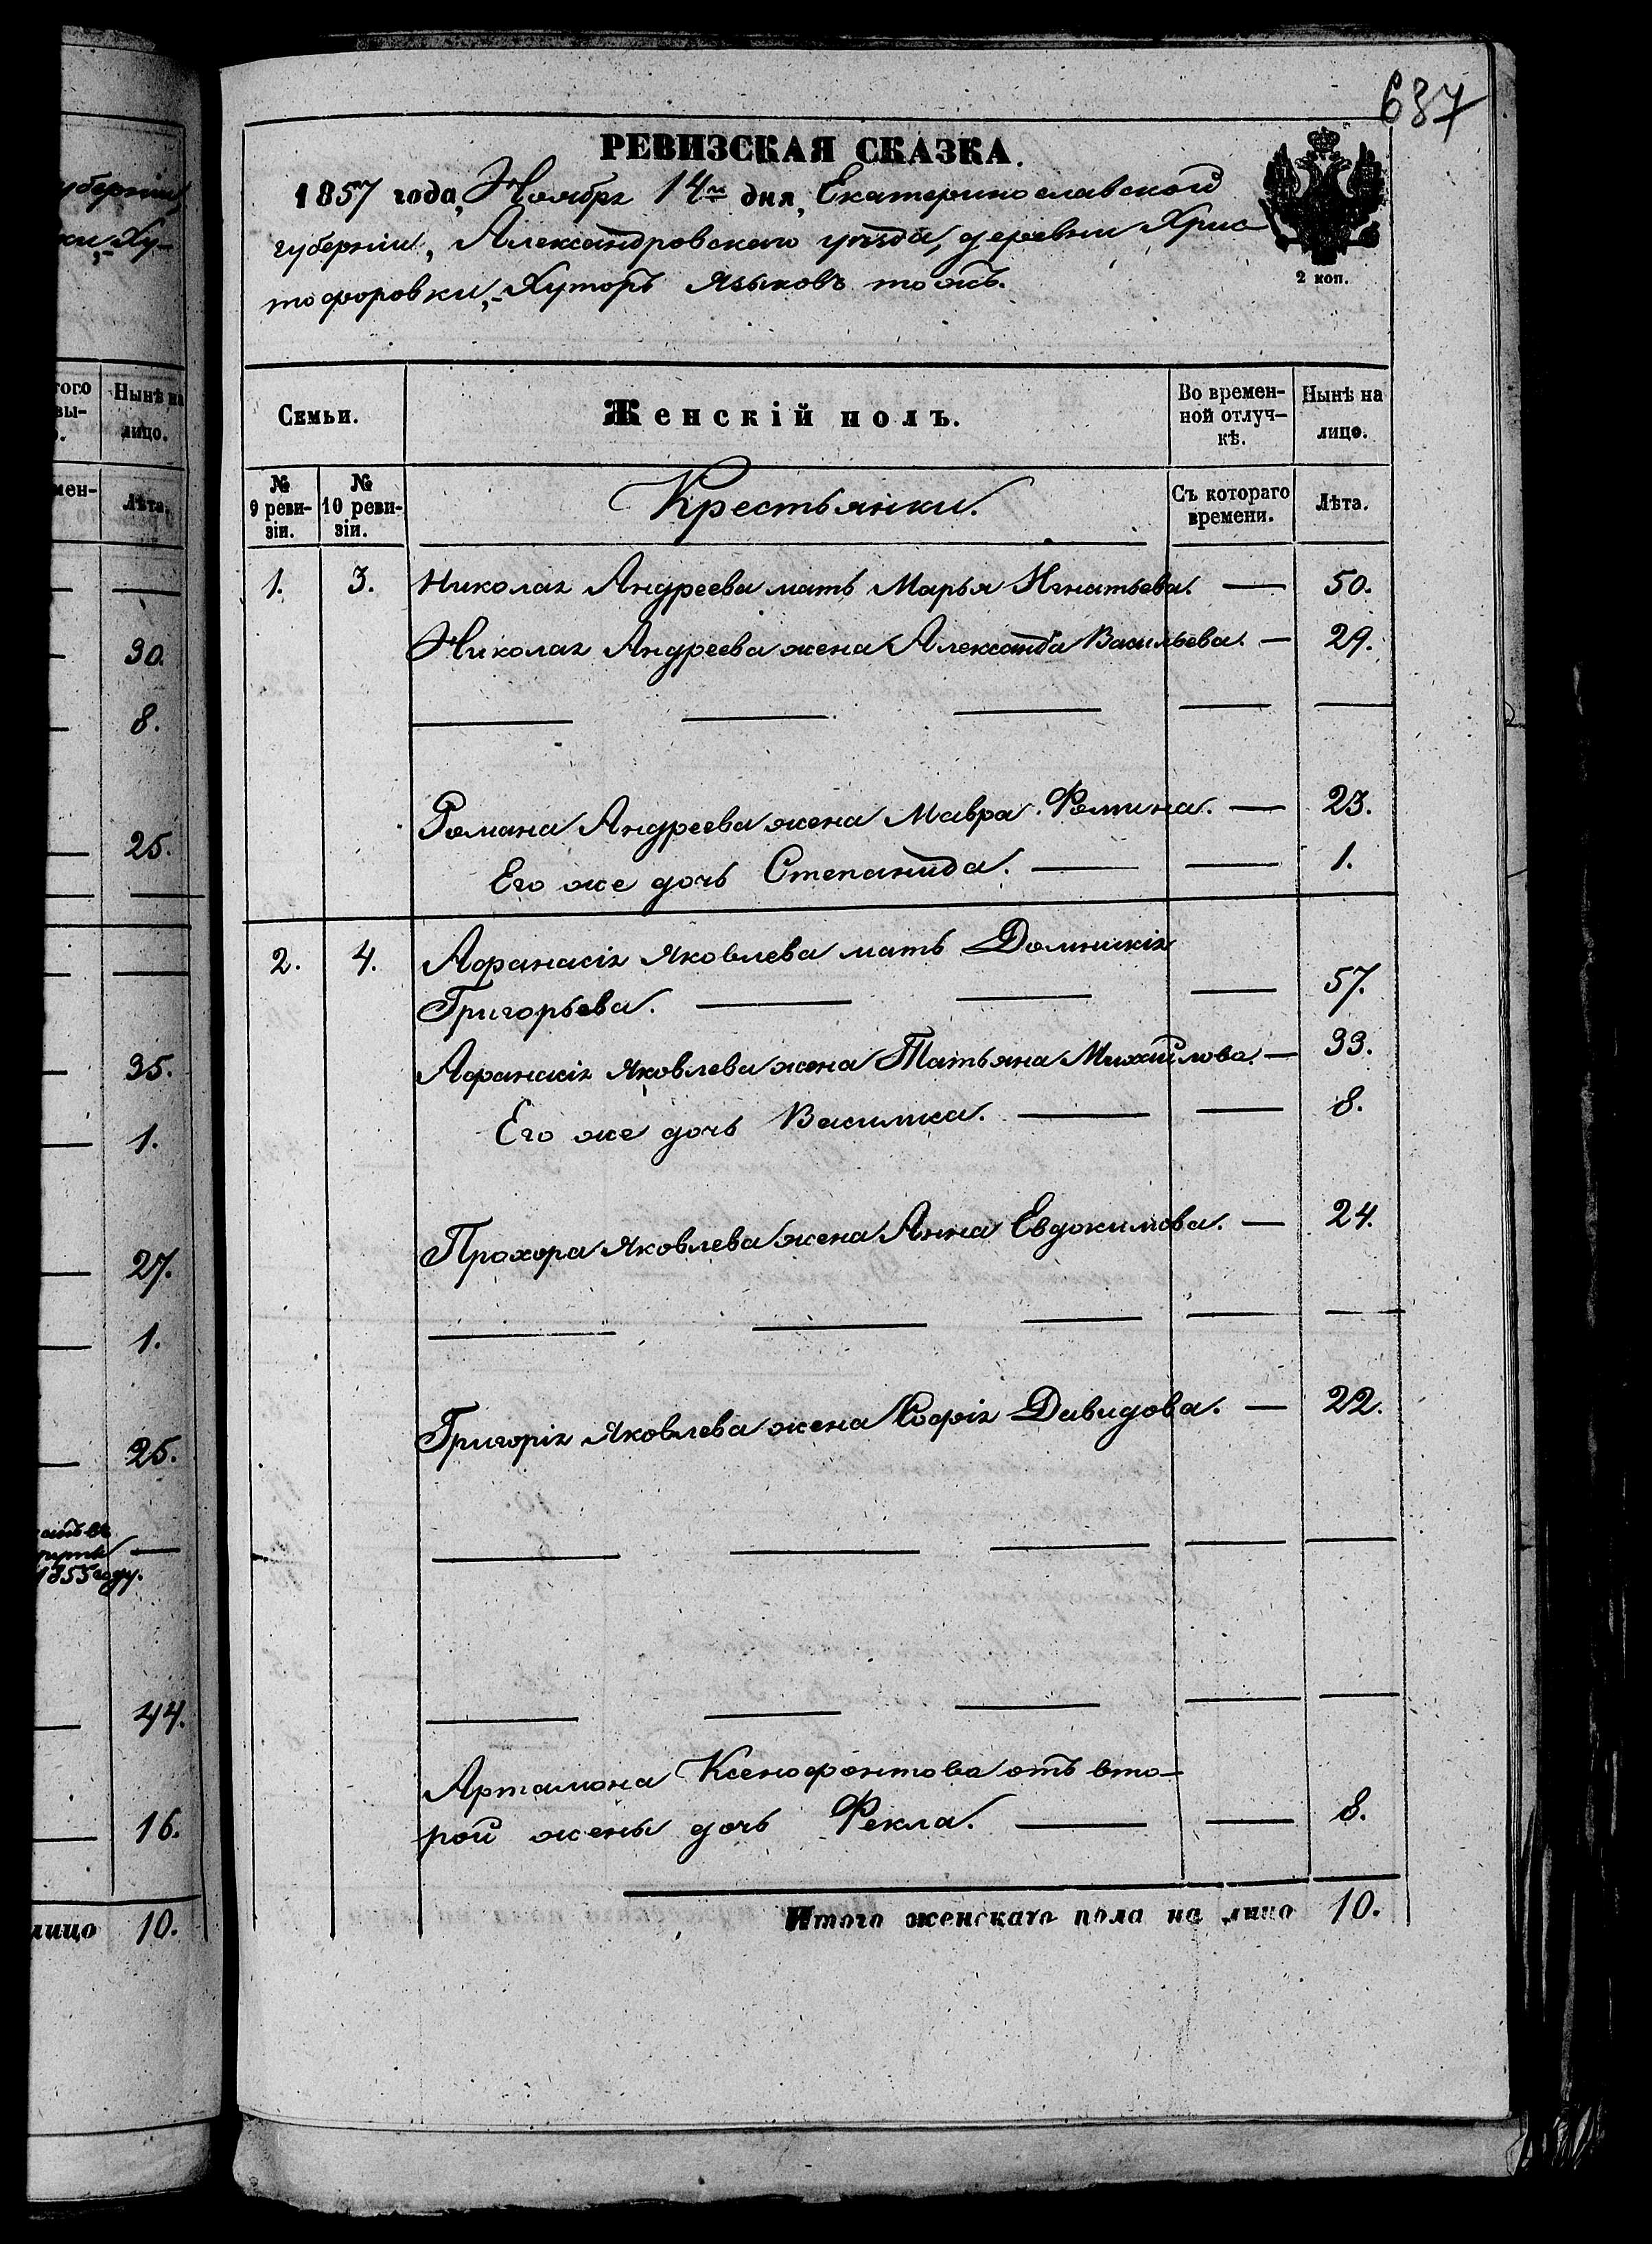 687
РЕВИЗСКАЯ СКАЗКА.
1857 года, Ноября 14го дня, Екатеринославской
губерніи, Александровскаго уѣзда, деревни Хрис
тофоровки,- Хуторъ Языковъ тожъ.
2 коп.
Семьи.
Женскій полъ.
Во времен-
ной отлуч-
кѣ.
Нынѣ на
лицо.
№
9 реви-
зіи.
№
10 реви-
зіи.
Крестьянки.
Съ котораго
времени.
Лѣта.
1. 3. Николая Андреева мать Марья Игнатьева. — 50.
Николая Андреева жена Александра Васильева. — 29.
Романа Андреева жена Мавра Фомина. — 23.
Его же дочь Степанида. — — 1.
2. 4. Афанасія Яковлева мать Домникія
Григорьева. — — — 57.
Афанасія Яковлева жена Татьяна Михайлова — 33.
Его же дочь Василиса. — — 8.
Прохора Яковлева жена Анна Евдокимова. — 24.
Григорія Яковлева жена Софія Давидова. — 22.
Артамона Ксенофонтова отъ вто-
рой жены дочь Фекла. — — 8.
Итого женскаго пола на лицо 10.
губерніи,
ки,- Ху-
того
вы-
Нынѣ на
лицо.
мен-
Лѣта.
30.
8.
25.
35.
1.
27.
1.
25.
1855 году.
44.
16.
лицо 10.